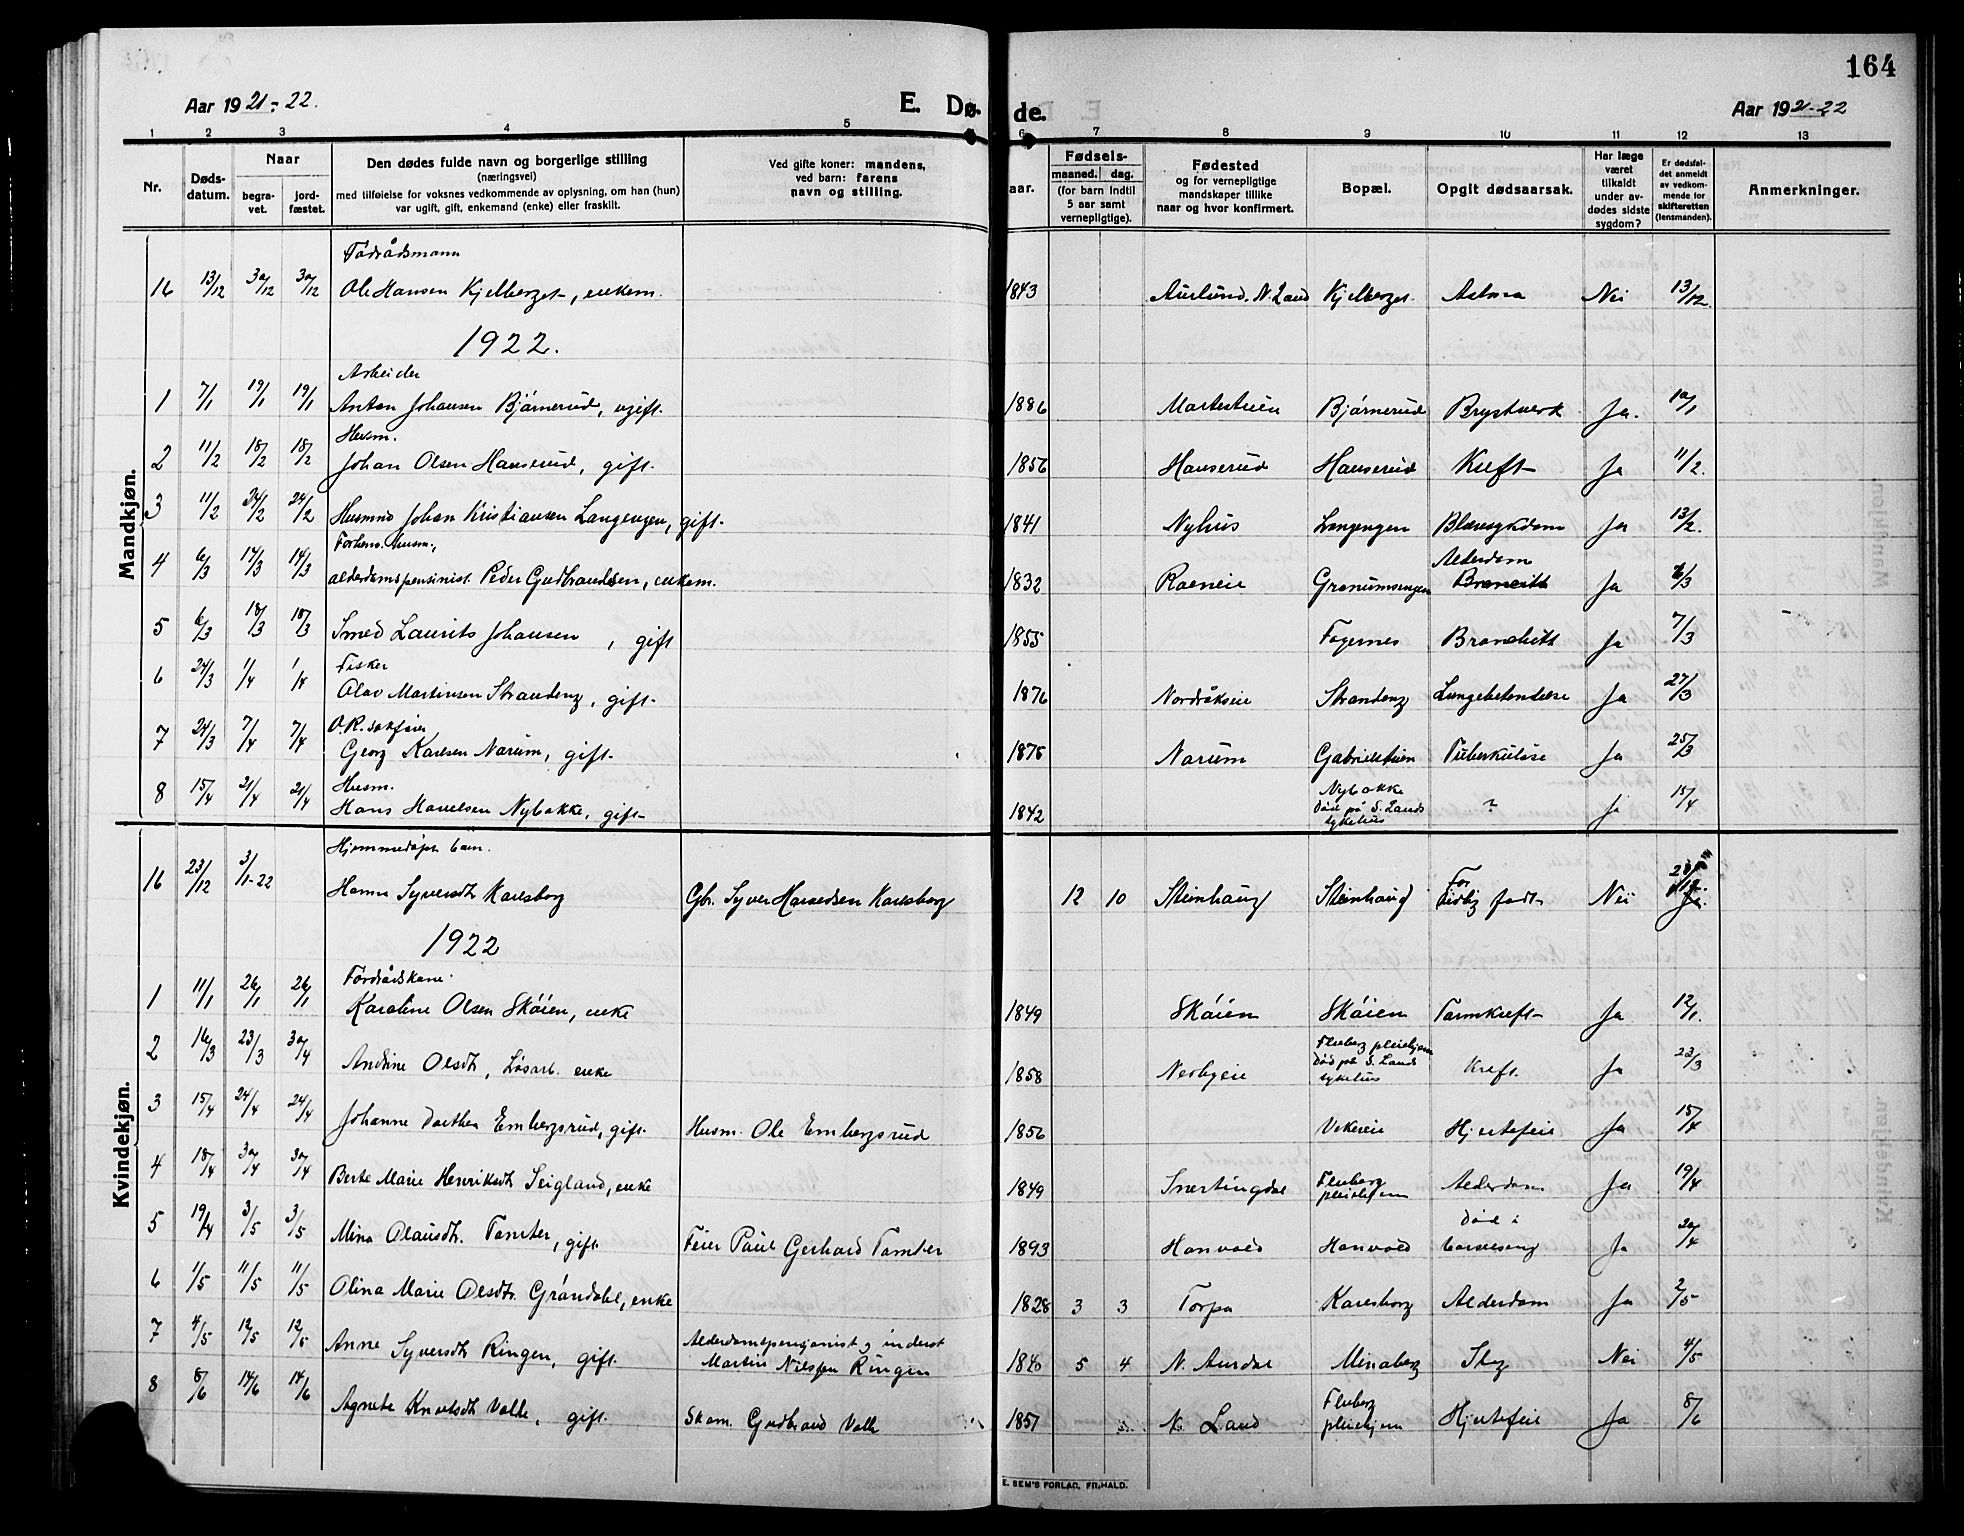 164
Aar 1921-22.
E. Dø. de.
Aar 1921-22
1 2 3 4 5 6 7 8 9 10 11 12 13
Nr.
Døds-datum.
Naar
begra-vet.
jord-fæstet.
Den dødes fulde navn og borgerlige stilling
(næringsvei)
med tilføielse for voksnes vedkommende av oplysning, om han (hun)
var ugift, gift, enkemand (enke) eller fraskilt.
Ved gifte koner: mandens,
ved barn: farens
navn og stilling.
aar.
Fødsels-
maaned. dag.
(for barn indtil
5 aar samt
vernepligtige).
Fødested
og for vernepligtige
mandskaper tillike
naar og hvor konfirmert.
Bopæl.
Opgit dødsaarsak.
Har læge
været
tilkaldt
under av-
dødes sidste
sygdom?
Er dødsfal-
det anmeldt
av vedkom-
mende for
skifteretten
(lensmanden).
Anmerkninger.
Mandkjøn.
Føderådsmann
16 13/12 30/12 30/12 Ole Hansen Kjelberget, enkem. 1843 Aurlund. N. Land Kjelberget. Astma Nei 13/12.
1922.
Arbeider
1 7/1 19/1 19/1 Anton Johansen Bjørnerud, ugift. 1886 Bjørnerud Brystverk Ja. 10/1
Husm.
2 11/2 18/2 18/2 Johan Olsen Hanserud, gift. 1856 Hanserud Hanserud Kreft Ja 11/2.
3 11/2 24/2 24/2 Husmnd Johan Kristiansen Langengen, gift. 1841 Nyhus Langengen Blæresykdom Ja 13/2.
Forhenv. husm.,
4 6/3 14/3 14/3 alderdomspensinist. Peder Gudbrandsen, enkem. 1832 Roeneie Granumsengen Alderdom Broncitt Ja 6/3
5 6/3 18/3 18/3 Smed Laurits Johansen, gift 1855 Fagernes Bronchitt Ja 7/3
Fisker
6 24/3 1/4 1/4 Olav Martinsen Strandeng, gift. 1876 Nordråkseie Strandeng Lungebetendelse Ja 27/3
O.R. sakfører
7 24/3 7/4 7/4 Georg Karlsen Narum, gift. 1875 Narum Tuberkulose Ja 25/3
Husm.
8 15/4 21/4 21/4 Hans Hanelsen Nybakke, gift 1842 Nybakke Død på S. Lands sykehus ? Ja 15/4
Kvindekjøn.
Hjemmedøpt barn.
16 23/12 3/1-22 Hanna Syversdt Karlsborg Gbr. Syver Haraldsen Karlsborg 12 10 Steinhaug Steinhaug For tidlig født Nei
1922
Førdrådskone
1 11/1 26/1 26/1 Karoline Olsen Skøien, enke 1849 Skøien Skøien Tarmkreft Ja 12/1.
2 16/3 23/3 30/4 Andrine Olsdt, Løsarb. enke 1858 Nerbyeie Fluberg pleiehjem Død på S. Lands sykehus Kreft. Ja 23/3
3 15/4 24/4 24/4 Johanne Dorthea Embergsrud, gift. Husm. Ole Embergsrud 1856 Vekreie Hjertefeil Ja 18/4
4 18/4 30/4 30/4 Berte Marie Henriksdt Seigland, enke 1849 Snertingdal Fluberg pleiehjem Alderdom Ja 19/4
5 19/4 3/5 3/5 Mina Olausdt. Tomter, gift Feier Paul Gerhard Tomter 1893 Honvold Honvold Død i barselseng Ja 20/4
6 1/5 11/5 11/5 Olina Marie Olsdtr. Grøndahl, enke 1828 3 3 Torpa Karlsborg Alderdom Ja 2/5
7 4/5 12/5 12/5 Anne Syversdt Ringen, gift. Alderdomspensjonist og inderst Martin Nilssen Ringen 1840 5 4 N. Aurdal Minaberg Slag Nei 4/5
8 8/6 14/6 14/6 Agnete Knutsdt Valle, gift. Skom. Gudbrand Valle 1851 N. Land Fluberg pleiehjem Hjertefeil Ja 8/6
E. SEM'S FORLAG, FR.HALD.